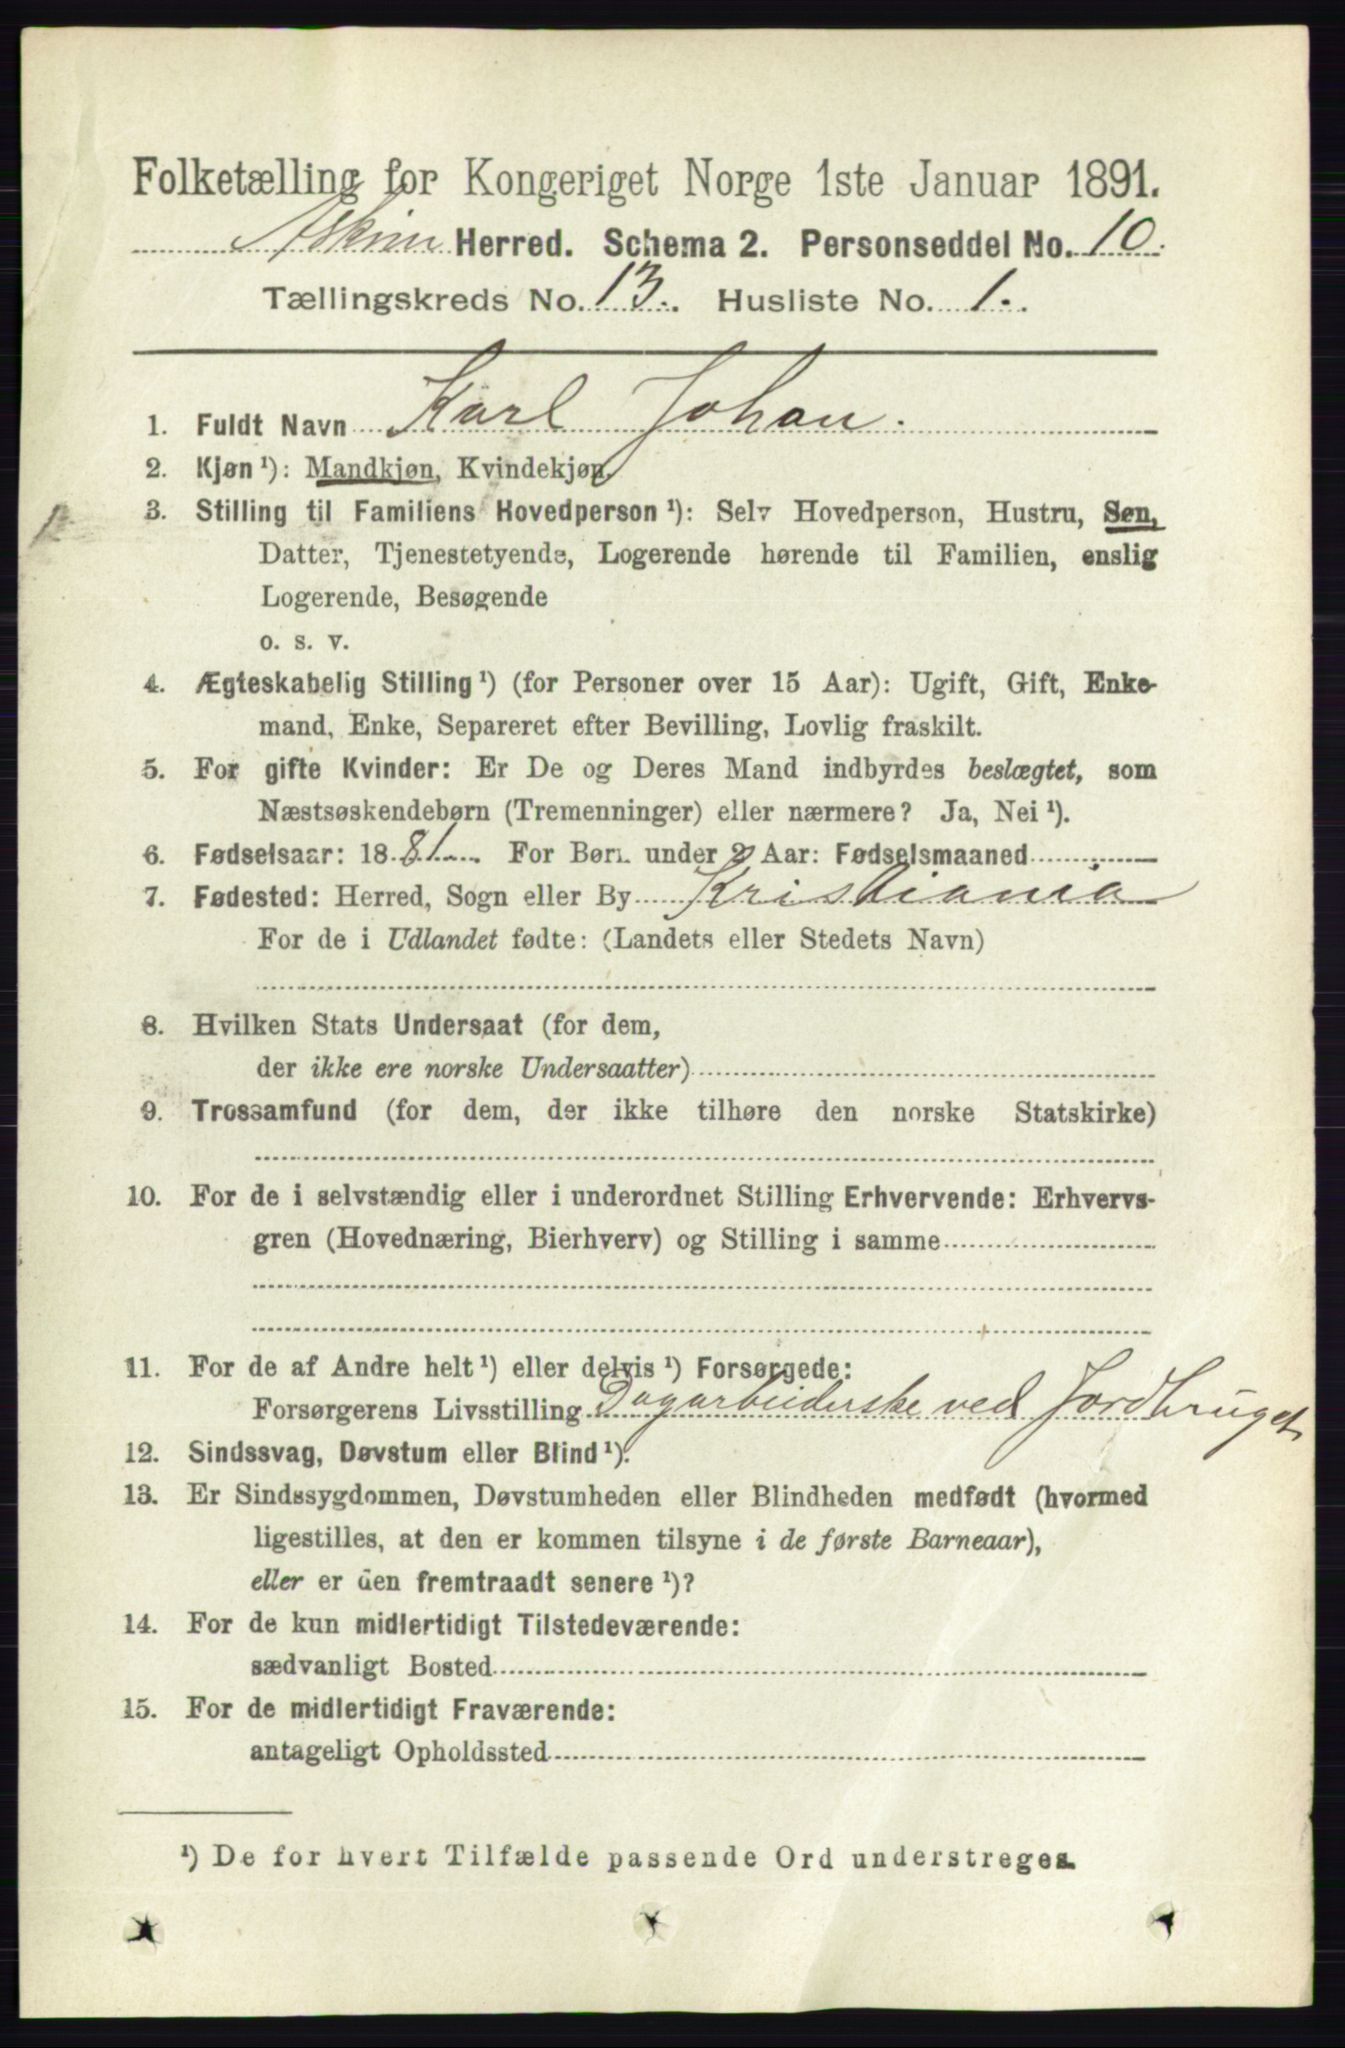 Folketælling for Kongeriget Norge 1ste Januar 1891.
Askim Herred. Schema 2. Personseddel No. 10.
Tællingskreds No. 13. Husliste No. 1.
1. Fuldt Navn Karl Johan.
2. Kjøn¹): Mandkjøn, Kvindekjøn.
3. Stilling til Familiens Hovedperson¹): Selv Hovedperson, Hustru, Søn,
Datter, Tjenestetyende, Logerende hørende til Familien, enslig
Logerende, Besøgende
o. s. v.
4. Ægteskabelig Stilling¹) (for Personer over 15 Aar): Ugift, Gift, Enke-
mand, Enke, Separeret efter Bevilling, Lovlig fraskilt.
5. For gifte Kvinder: Er De og Deres Mand indbyrdes beslægtet, som
Næstsøskendebørn (Tremenninger) eller nærmere? Ja, Nei¹).
6. Fødselsaar: 1881. For Børn under 2 Aar: Fødselsmaaned
7. Fødested: Herred, Sogn eller By Kristiania
For de i Udlandet fødte: (Landets eller Stedets Navn)
8. Hvilken Stats Undersaat (for dem,
der ikke ere norske Undersaatter)
9. Trossamfund (for dem, der ikke tilhøre den norske Statskirke)
10. For de i selvstændig eller i underordnet Stilling Erhvervende: Erhvervs-
gren (Hovednæring, Bierhverv) og Stilling i samme
11. For de af Andre helt¹) eller delvis¹) Forsørgede:
Forsørgerens Livsstilling Dagarbeiderske ved Jordbruget
12. Sindssvag, Døvstum eller Blind¹).
13. Er Sindssygdommen, Døvstumheden eller Blindheden medfødt (hvormed
ligestilles, at den er kommen tilsyne i de første Barneaar),
eller er den fremtraadt senere¹)?
14. For de kun midlertidigt Tilstedeværende:
sædvanligt Bosted
15. For de midlertidigt Fraværende:
antageligt Opholdssted
¹) De for hvert Tilfælde passende Ord understreges.